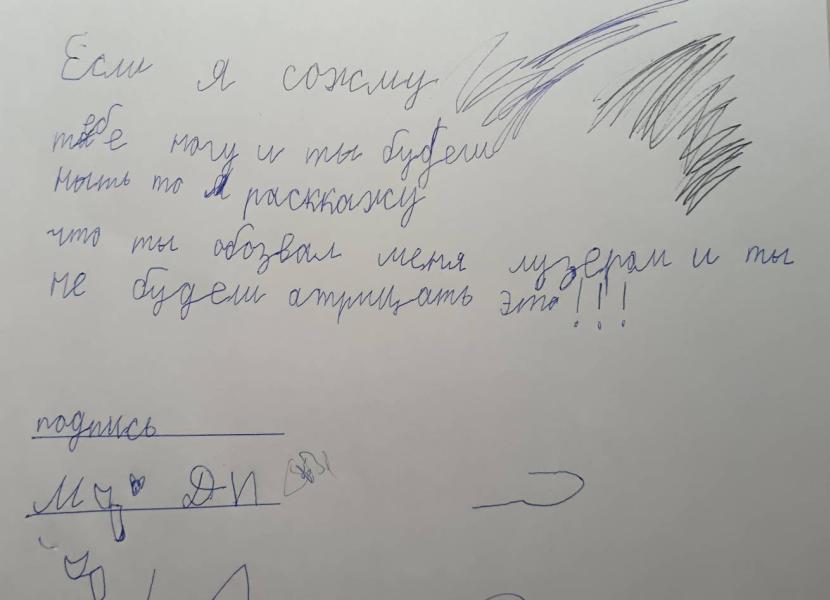 Если я сожму
тебе ногу и ты будеш
ныть то я расккажу
что ты обозвал меня лузером и ты
не будеш атрицать это!!!
подпись